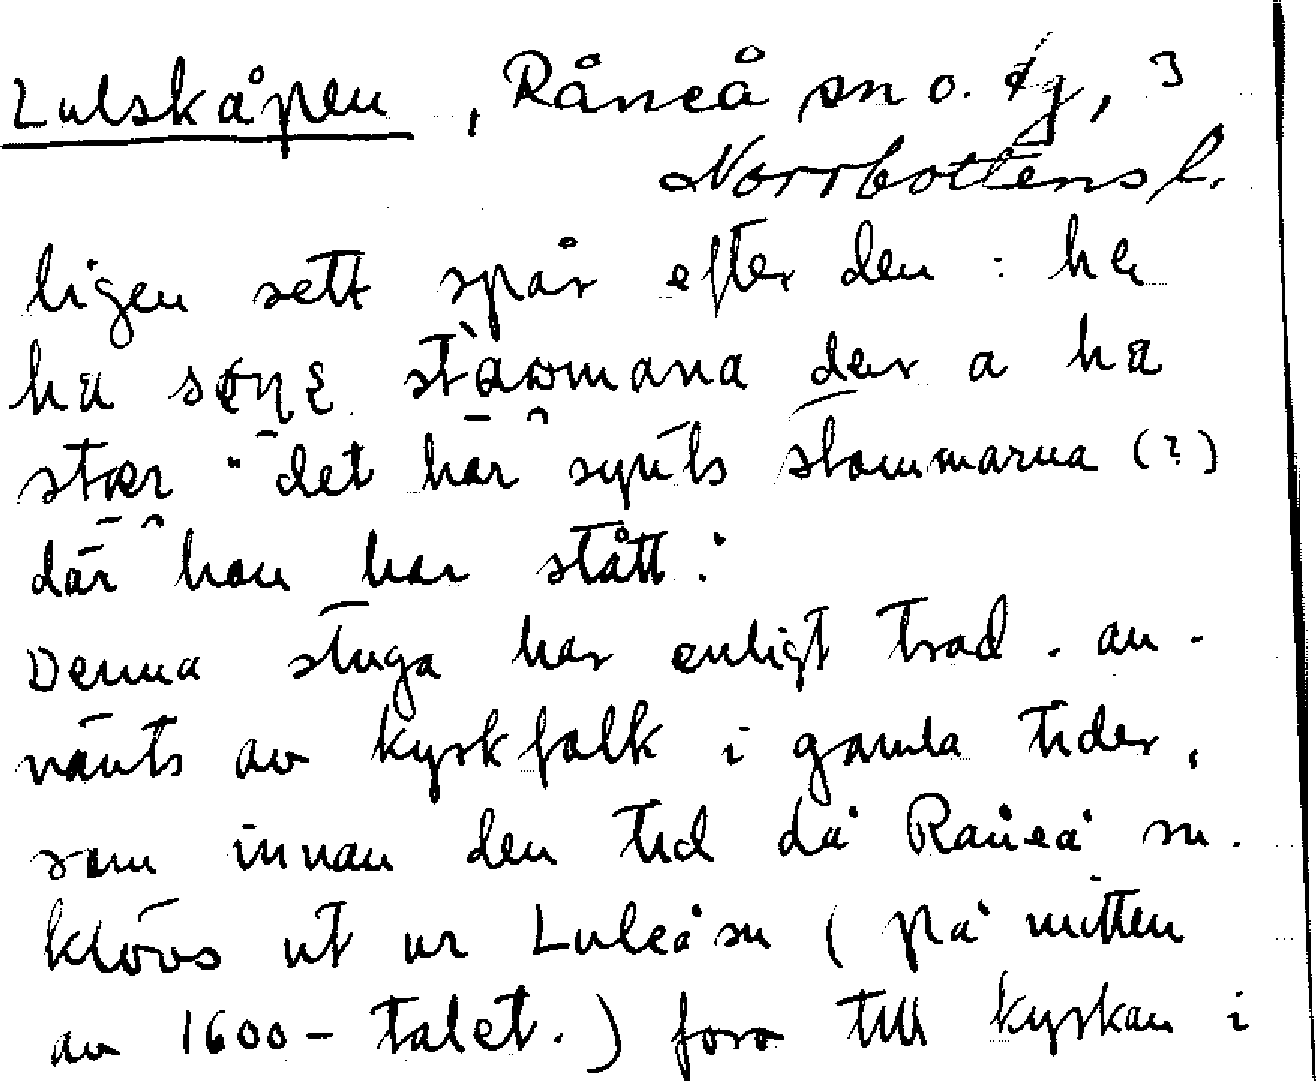 Lulskåpen, Råneå sn o. tg, 3
Norrbottens l.
ligen sett spår efter den : he
ha stawmana der a ha
stær "det har synts stommarna (?)
där han har stått".
Denna stuga har enligt trad. an-
vänts av kyrkfolk i gamla tider,
som innan den tid då Råneå sn.
klövs ut ur Luleå sn (på mitten
av 1600-talet.) foro till kyrkan i